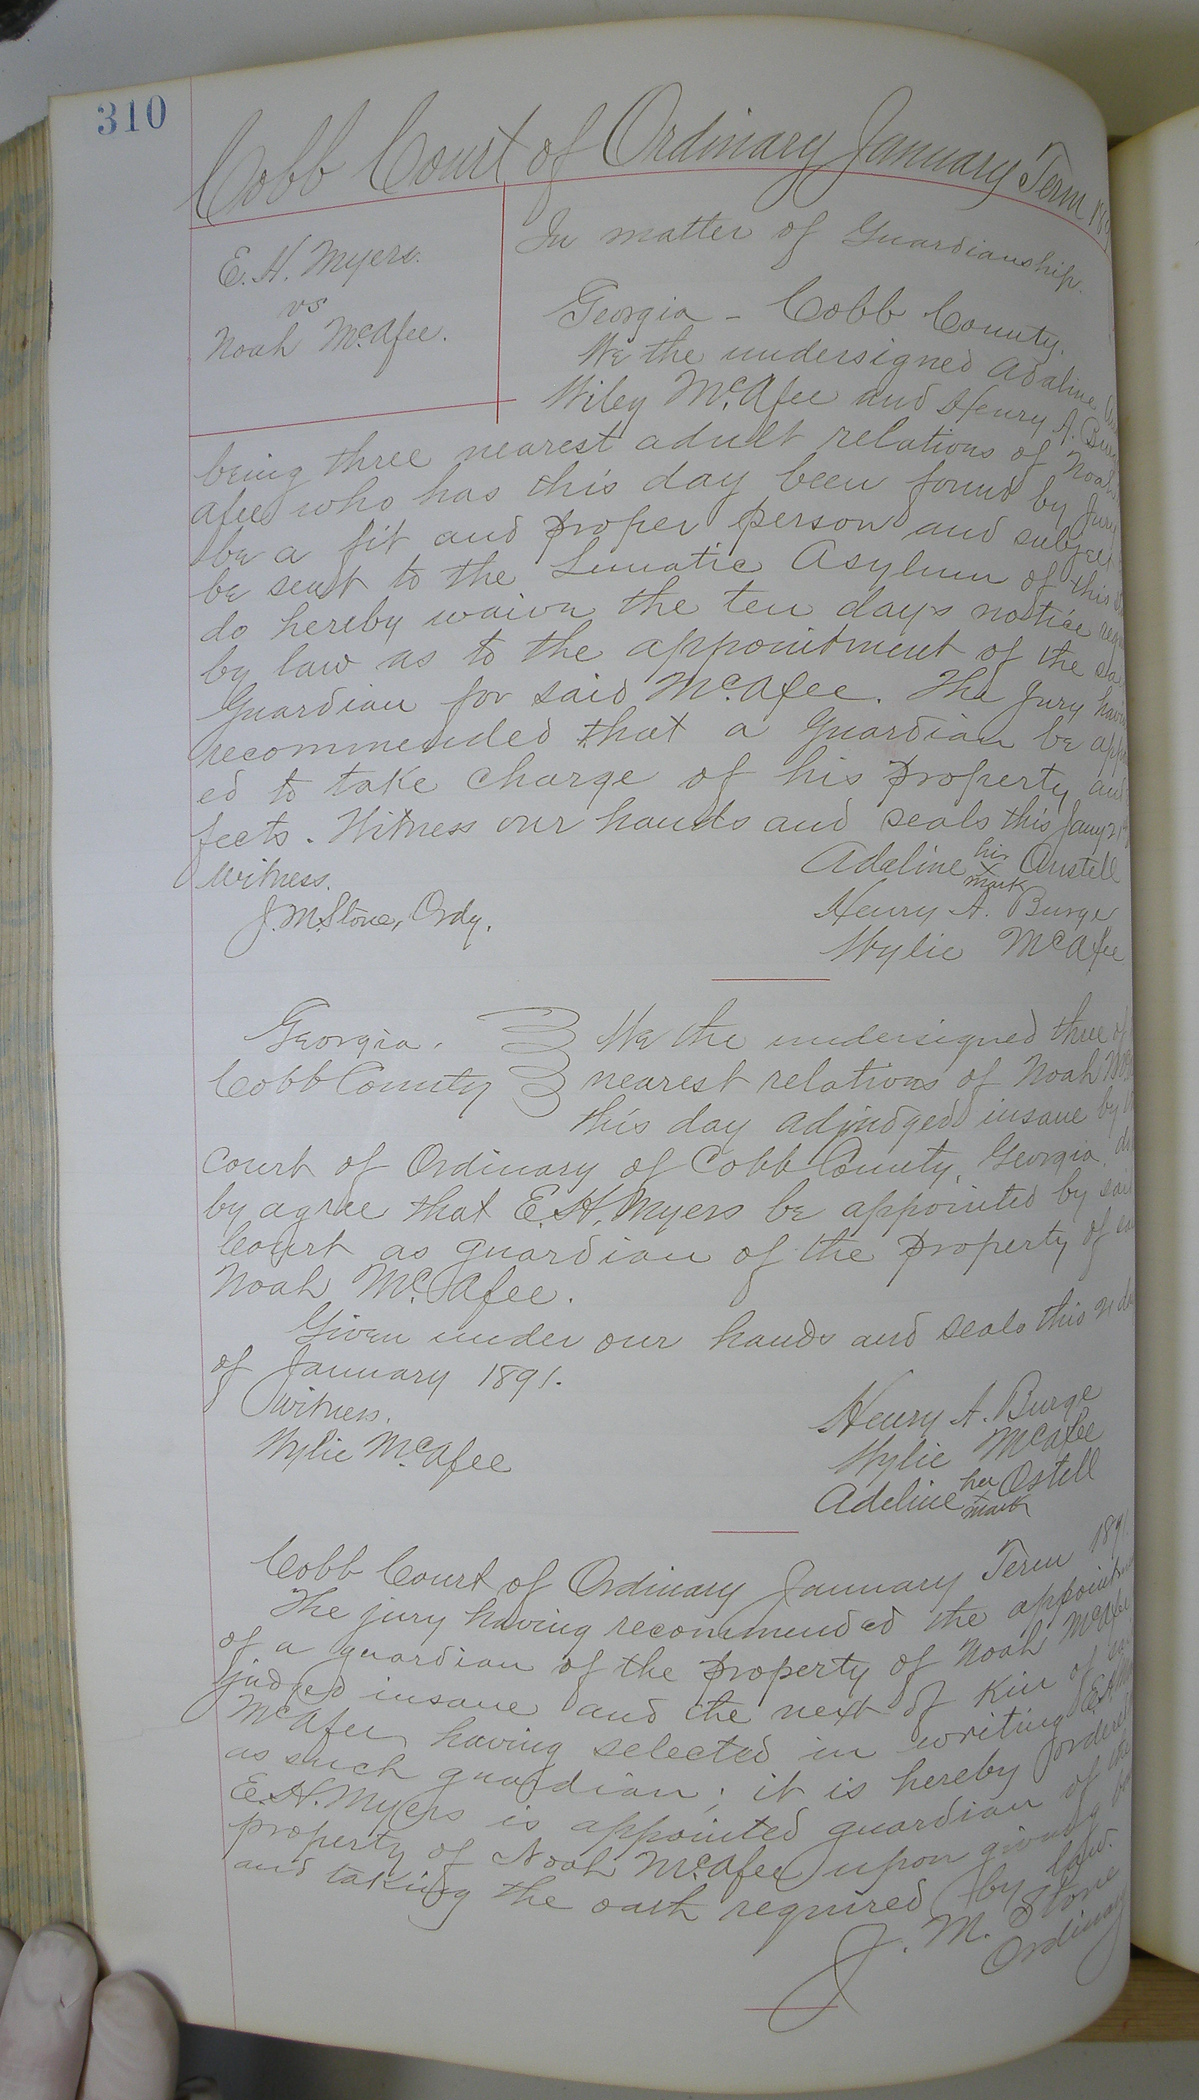 310
Cobb Court of Ordinary January Term 189
E. H. Myers.
vs
Noah McAfee.
In matter of Guardianship.
Georgia - Cobb County.
We the undersigned Adaline
Wiley McAfee and Henry A.
being three nearest adult relations of Noah
afee who has this day been found by Jury
be a fit and proper person and subject
be sent to the Lunatic Asylum of this
do hereby waive the ten days notice
by law as to the appointment of the
Guardian for said McAfee. The Jury
recommended that a Guardian be
ed to take charge of his property
fects. Witness our hands and seals this Jany 21
Witness.
J. M. Stone, Ordy.
Adeline his mark Austell
Henry A. Burge
Wylie McAfee
Georgia.
Cobb County
We the undersigned three of
nearest relations of Noah
this day adjudged insane by
Court of Ordinary of Cobb County, Georgia
by agree that E. H. Myers be appointed by said
Court as guardian of the property of
Noah McAfee.
Given under our hands and seals this 21
of January 1891.
Witness.
Wylie McAfee
Henry A. Burge
Wylie McAfee
Adeline her mark Ostell
Cobb Court of Ordinary January Term 1891.
The jury having recommended the
of a guardian of the property of Noah McAfee
judged insane and the next of kin of
McAfee having selected in writing
as such guardian; it is hereby ordered
E. H. Myers is appointed guardian of the
property of Noah McAfee upon giving
and taking the oath required by law.
J. M. Stone
Ordinary